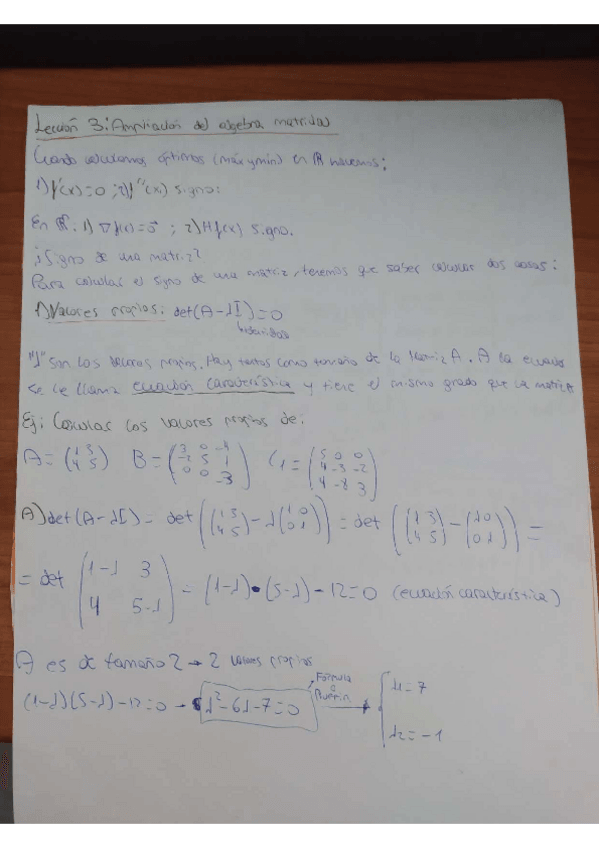 Lección 3: Ampliación del algebra matricial
Cuando calculamos óptimos (máx y min) en ℝ hacemos:
1) f'(x)=0 ; 2) f''(x) signo:
En ℝⁿ: 1) ∇f(x)=0⃗ ; 2) Hf(x) signo.
¿Signo de una matriz?
Para calcular el signo de una matriz, tenemos que saber calcular dos cosas:
1) Valores propios: det(A-λI)=0
identidad
"λ" son los valores propios. Hay tantos como tamaño de la A. A la ecuación
se le llama ecuación característica y tiene el mismo grado que la matriz
Ej: Calcular los valores propios de:
A = (1 3; 4 5) B = (3 0 -4; -2 5 1; 0 0 -3) C1 = (5 0 0; 4 -3 -2; 4 -8 3)
A) det(A-λI) = det((1 3; 4 5) - λ(1 0; 0 1)) = det((1 3; 4 5) - (λ 0; 0 λ)) =
= det (1-λ 3; 4 5-λ) = (1-λ)•(5-λ)-12=0 (ecuación característica)
A) es de tamaño 2 → 2 valores propios
(1-λ)(5-λ)-12=0 → λ²-6λ-7=0 Fórmula o Ruffini → { λ1=7
λ2=-1